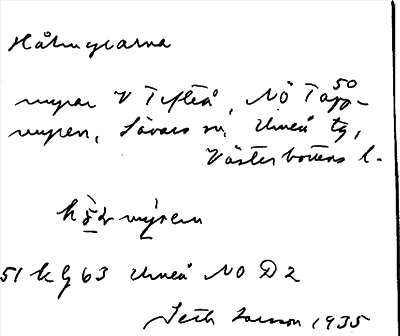 Hålmyrarna
myrar V Tefteå, NÖ Tapp-
50
myren, Sävars sn, Umeå tg,
Västerbottens l.
myren
51 kg 63 Umeå NO D2
Seth Larsson 1935